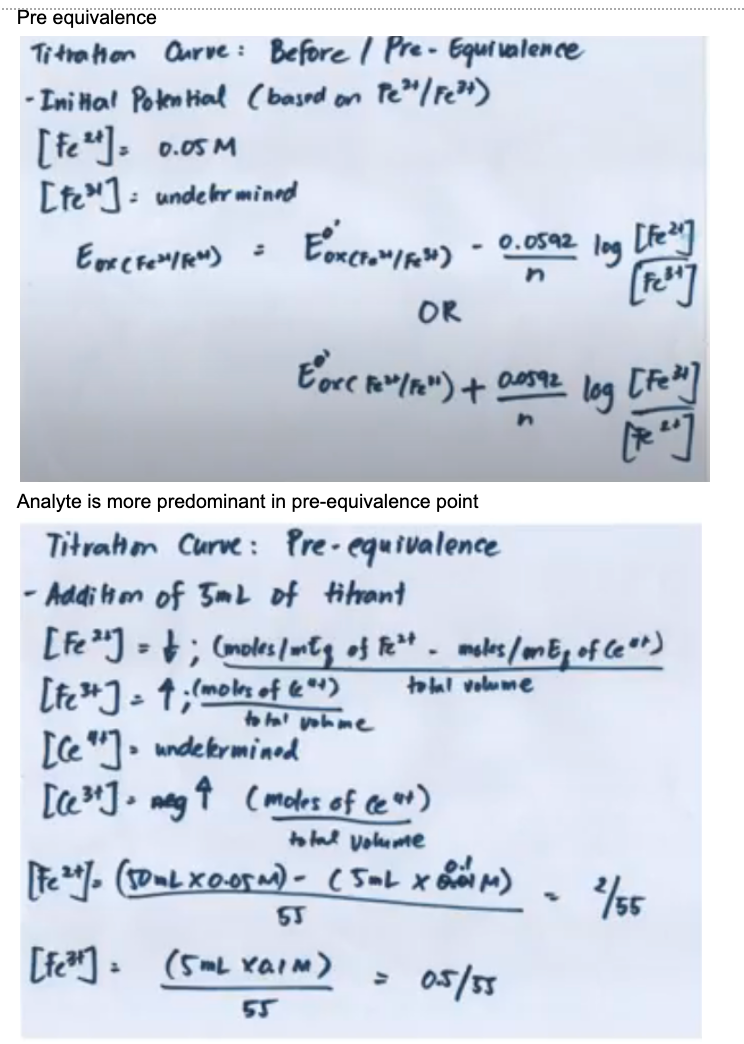 Pre equivalence
Titration Curve: Before / Pre - Equivalence
- Initial Potential (based on Fe²⁺/Fe³⁺)
[Fe²⁺] = 0.05 M
[Fe³⁺] = undetermined
Eox(Fe²⁺/Fe³⁺) = E⁰'ox(Fe²⁺/Fe³⁺) - 0.0592/n log [Fe²⁺]/[Fe³⁺]
OR
E⁰'ox(Fe²⁺/Fe³⁺) + 0.0592/n log [Fe³⁺]/[Fe²⁺]
Analyte is more predominant in pre-equivalence point
Titration Curve: Pre-equivalence
- Addition of 5mL of titrant
[Fe²⁺] = ↓ ; (moles/mEq of Fe²⁺ - moles/mEq of Ce⁴⁺)/total volume
[Fe³⁺] = ↑ ; (moles of Ce⁴⁺)/total volume
[Ce⁴⁺] = undetermined
[Ce³⁺] = neg ↑ (moles of Ce⁴⁺)/total volume
[Fe²⁺] = (50mL X 0.05M) - (5mL X 0.1 M)/55 = 2/55
[Fe³⁺] = (5mL X 0.1M)/55 = 0.5/55